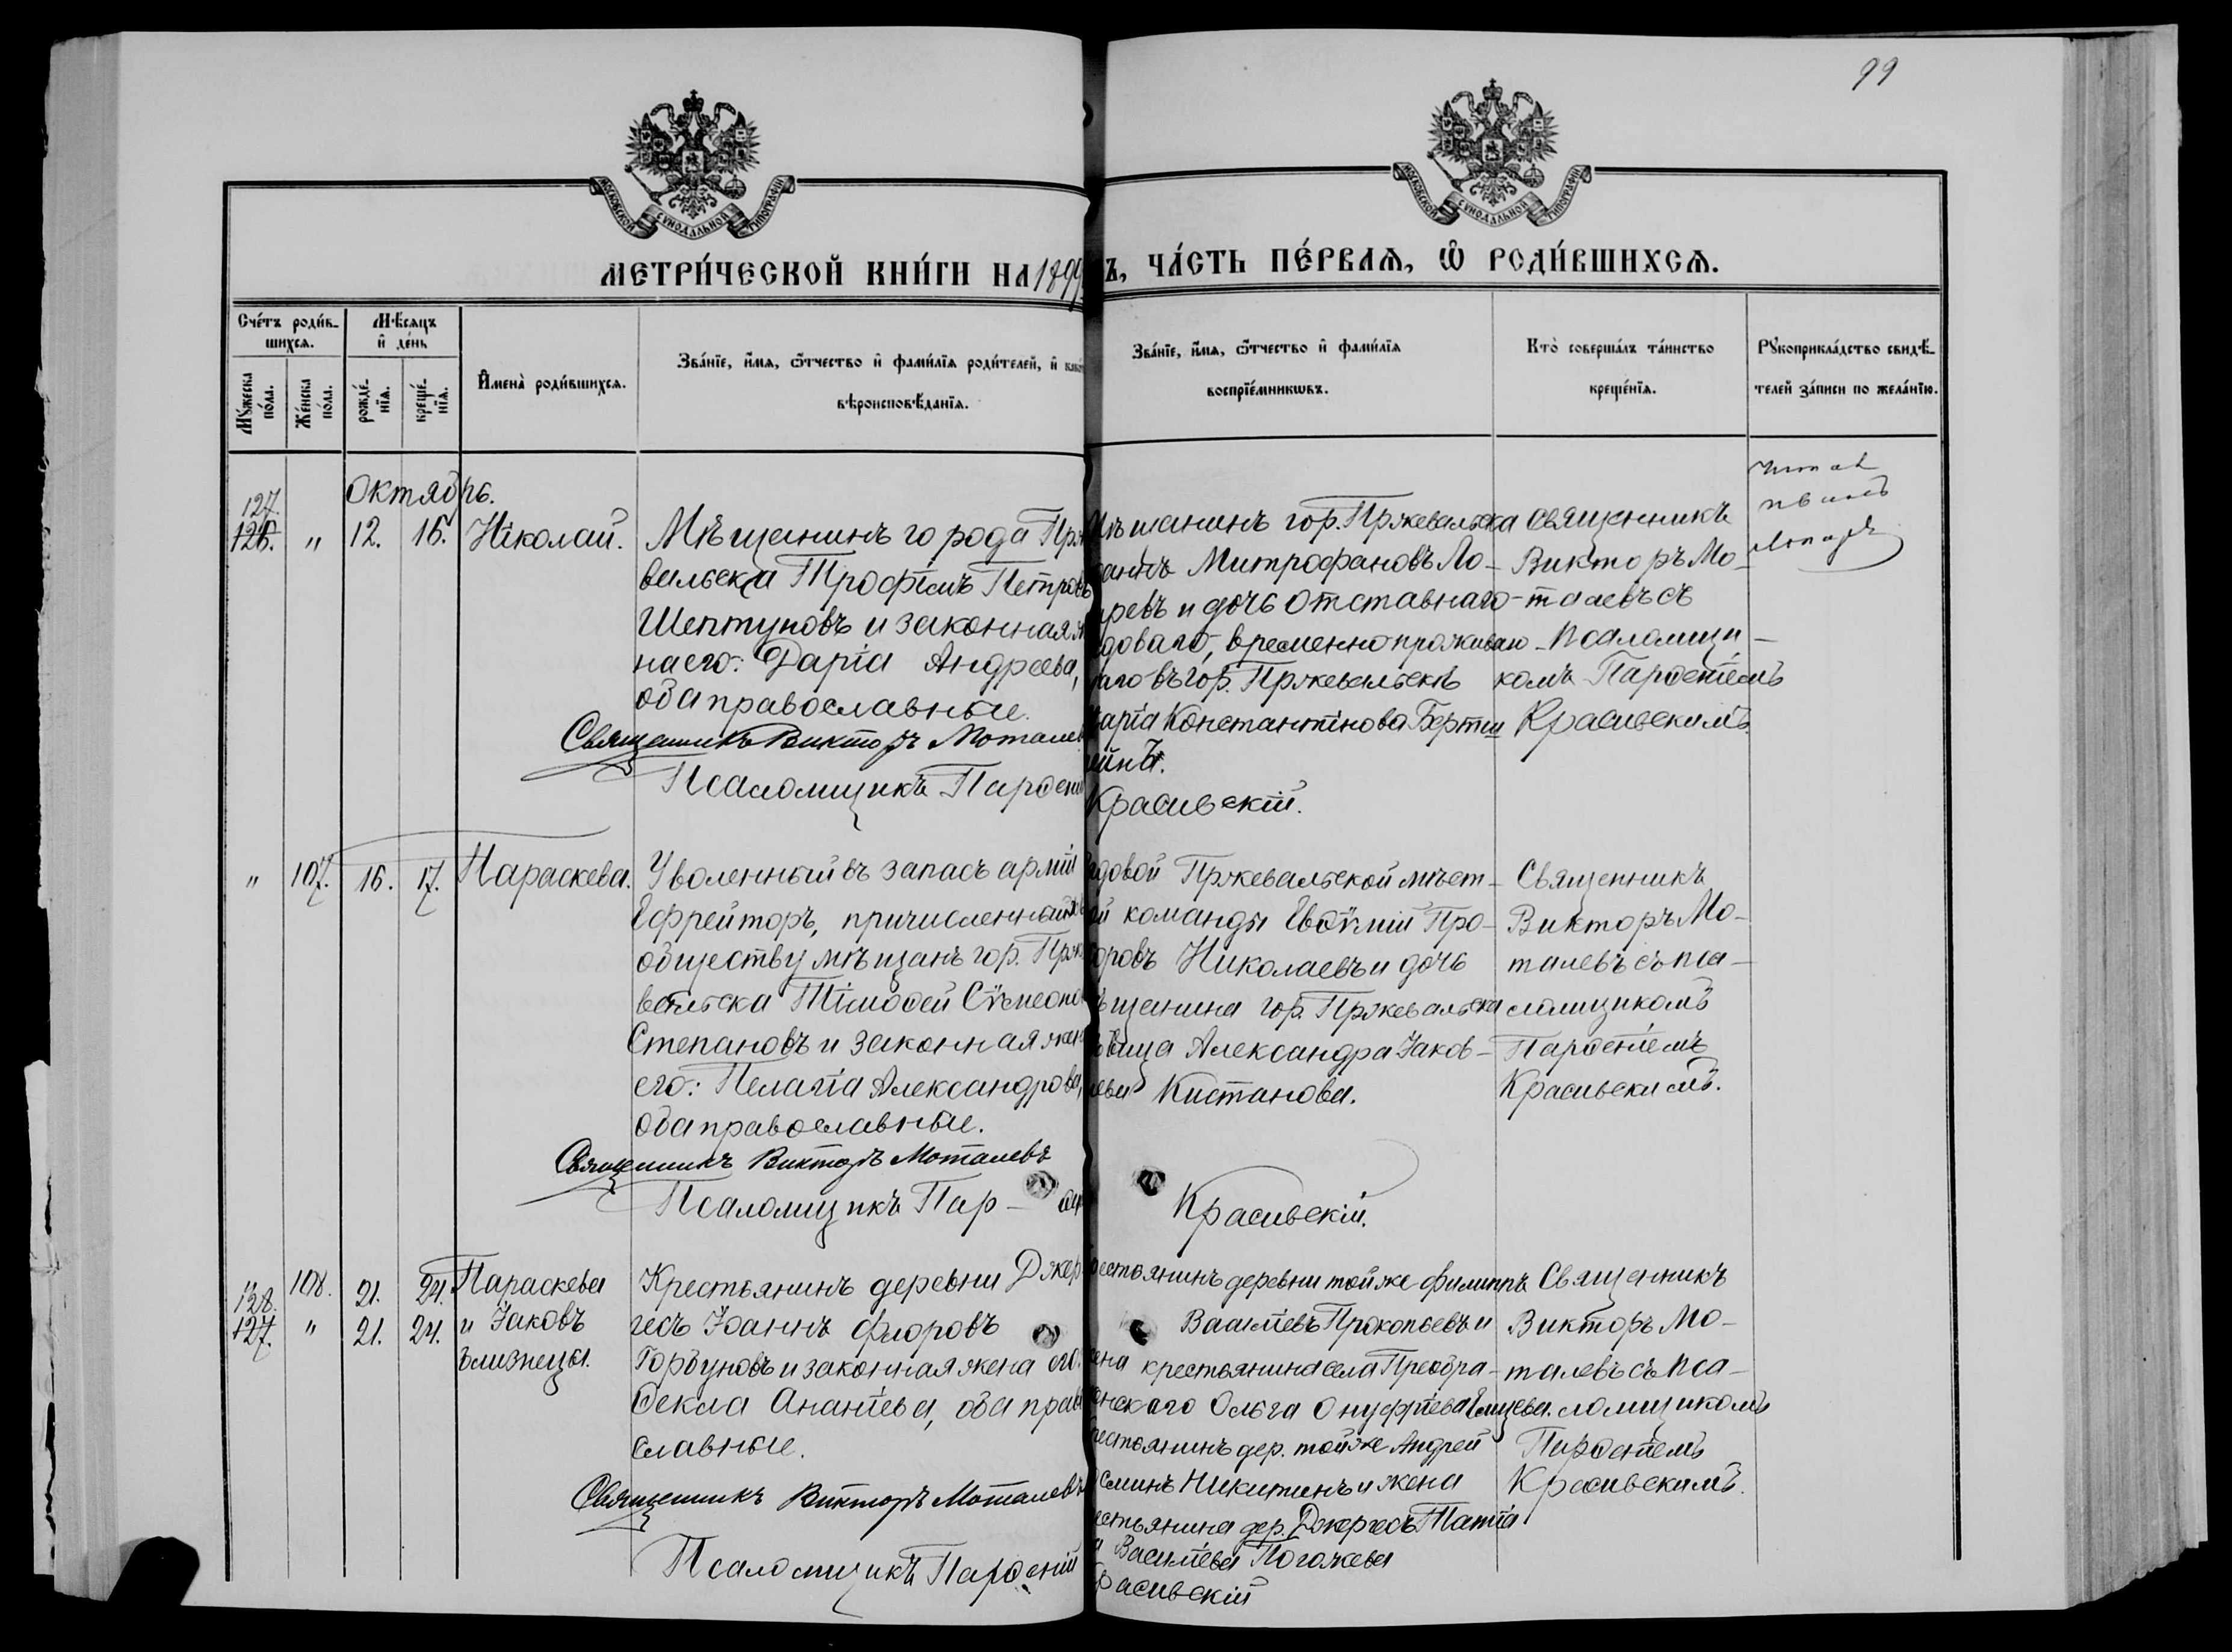 99
МОСКОВСКОЙ СѴНОДАЛЬНОЙ ТИПОГРАФІИ
МОСКОВСКОЙ СѴНОДАЛЬНОЙ ТИПОГРАФІИ
МЕТРИ́ЧЕСКОЙ КНИ́ГИ НА 1899
Ъ, ЧА́СТЬ ПЕ́РВАѦ, Ѽ РОДИ́ВШИХСѦ.
Сче́тъ роди́в-
шихсѧ.
Мѣ́сѧцъ
и҆ де́нь
Мꙋ́жеска
по́ла.
Же́нска
по́ла.
рожде́-
нїѧ.
креще́-
нїѧ.
И҆мена̀ роди́вшихсѧ.
Зва́нїе, и҆́мѧ, ѻ҆́тчество и҆ фами́лїѧ роди́телей, и҆ како
вѣроисповѣ́данїѧ.
Зва́нїе, и҆́мѧ, ѻ҆́тчество и҆ фами́лїѧ
воспрїе́мникѡвъ.
Кто̀ соверша́лъ та́инство
креще́нїѧ.
Рꙋкоприкла́дство свидѣ́-
телей за́писи по жела́нїю.
Октябрь.
127.
126. " 12. 16. Ніколай.
Мѣщанинъ города Прж
вальска Трофімъ Петровъ
Шептуновъ и законная ж
на его: Дарія Андреева,
оба православные.
Священникъ Викторъ Моталев
Псаломщикъ Парѳені
ѣщанинъ гор. Пржевальска
Митрофановъ Ло-
аревъ и дочь отставнаго
доваго, временно прожива��
аго въ гор. Пржевальскѣ
арія Константінова Берти
йнъ.
Красивскій.
Священникъ
Викторъ Мо-
талевъ съ
псаломщи-
комъ Парѳеніемъ
Красивскимъ.
" 107. 16. 17. Параскева.
Уволенный въ запасъ арміи
Ефрейторъ, причисленный къ
обществу мѣщанъ гор. Прже
вальска Тімоѳей Сѷмеонов
Степановъ и законная жен
его: Пелагія Александрова,
оба православные.
Священникъ Викторъ Моталевъ
Псаломщикъ Пар-ѳен
ядовой Пржевальской мѣст-
ой команды Евѳѵмій Про-
оровъ Николаевъ и дочь
ѣщанина гор. Пржевальска
ѣвица Александра Іаков-
лева Кистанова.
Красивскій.
Священникъ
Викторъ Мо-
талевъ съ пса-
ломщикомъ
Парѳеніемъ
Красивскимъ.
" 108. 21. 24. Параскева
128.
127. " 21. 24. и Іаковъ
близнецы.
Крестьянинъ деревни Джер
гесъ Іоаннъ Флоровъ
Горбуновъ и законная жена его:
Ѳекла Ананіева, оба право
славные.
Священникъ Викторъ Моталевъ
Псаломщикъ Парѳеній
рестьянинъ деревни той же Филиппъ
Василіевъ Прокопьевъ и
ена крестьянина села Преобра-
енскаго Ольга Онуфріева
рестьянинъ дер. той же Андрей
Никитинъ и жена
естьянина дер. Джергесъ Татіа
а Васильева Погожева
расивскій
Священникъ
Викторъ Мо-
талевъ съ пса-
ломщикомъ
Парѳеніемъ
Красивскимъ.